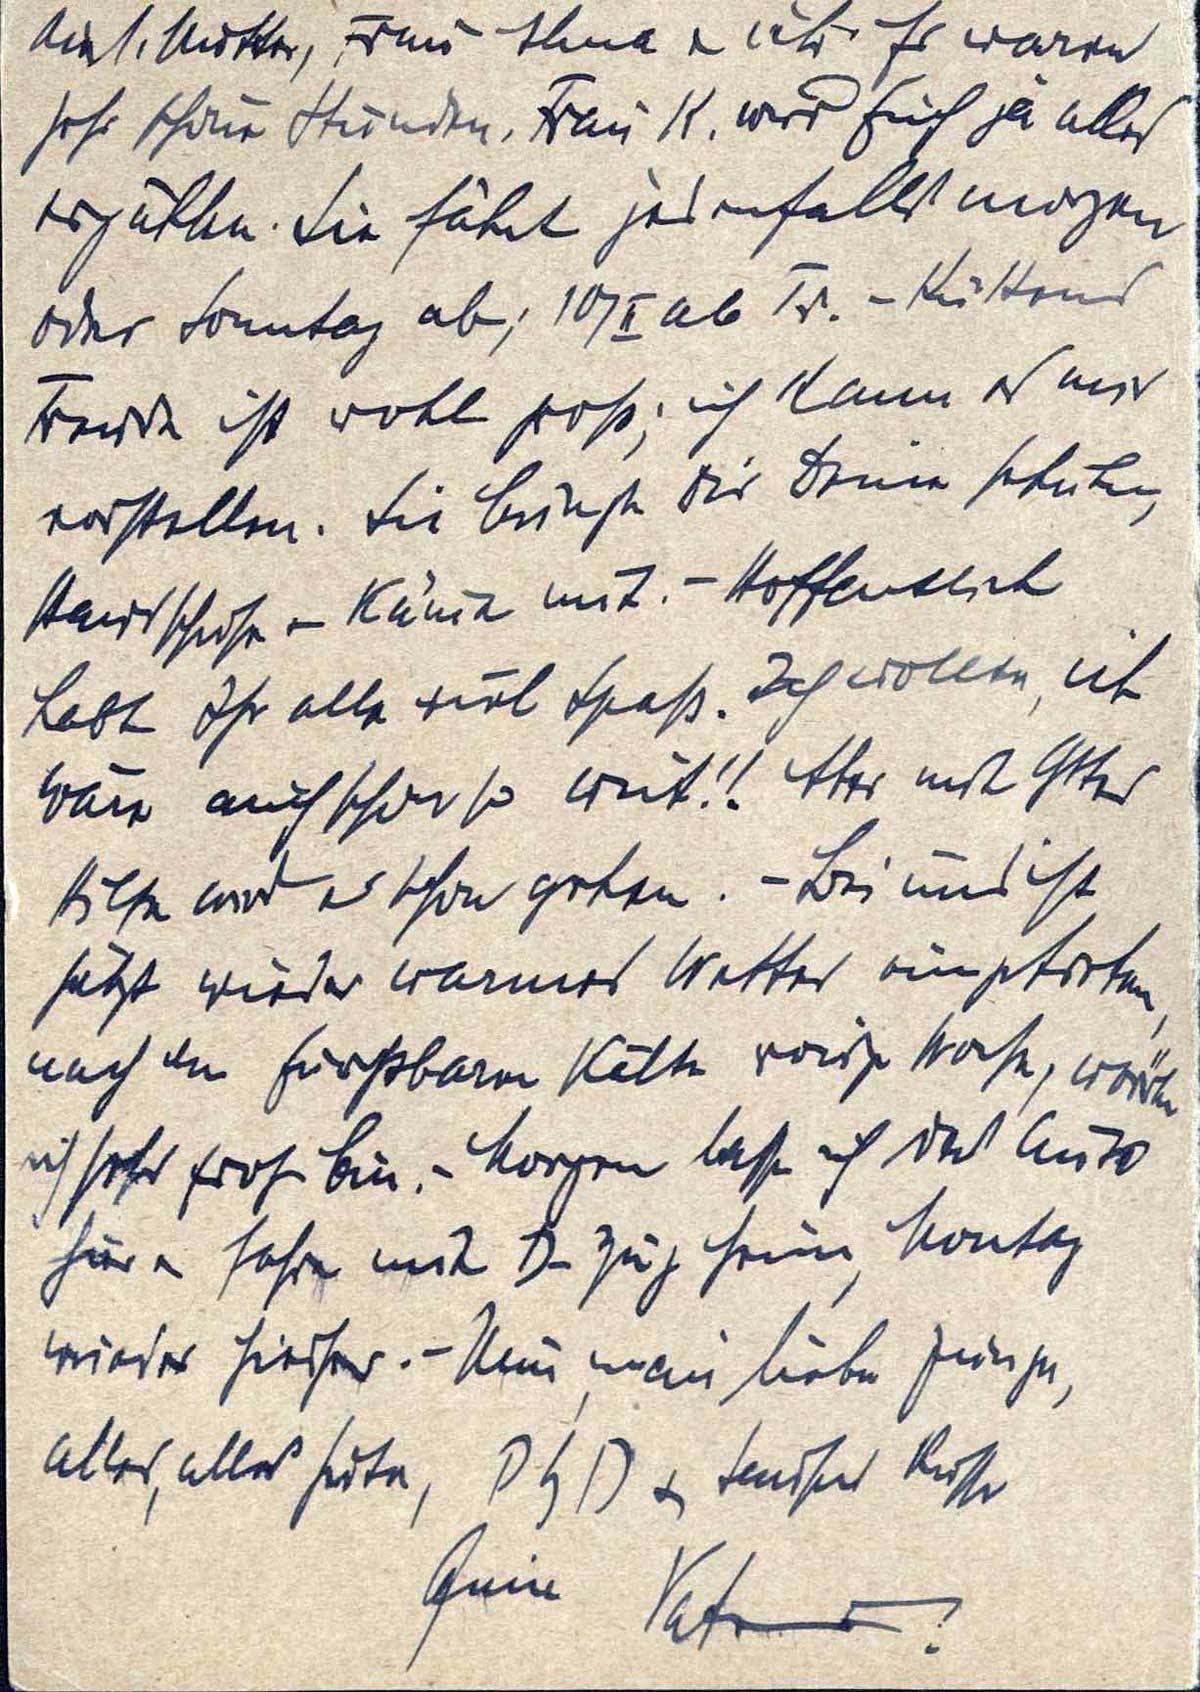 Mutter, Frau u. ich. Es waren
sehr schöne Stunden. Frau K. wird Euch ja alles
erzählen. Sie fährt jedenfalls morgen
oder Sonntag ab; 10/II ab Tr. –
Freude ist wohl groß; ich kann es mir
vorstellen. Sie bringt Dir Deine Schuhe,
Handschuhe u. Kämme mit. – Hoffentlich
habt Ihr alle viel Spaß. Ich wollte, ich
wäre auch schon so weit!! Aber mit Gottes
Hilfe wird es schon gehen. – Bei uns ist
jetzt wieder warmes Wetter eingetreten,
nach der furchtbaren Kälte voriger Woche, worüber
ich sehr froh bin. – Morgen lasse ich das Auto
hier u. fahre mit D-Zug heim, Montag
wieder hierher. – Nun, mein lieber Junge,
alles, alles Gute, & tausend Küsse
Dein Vater!